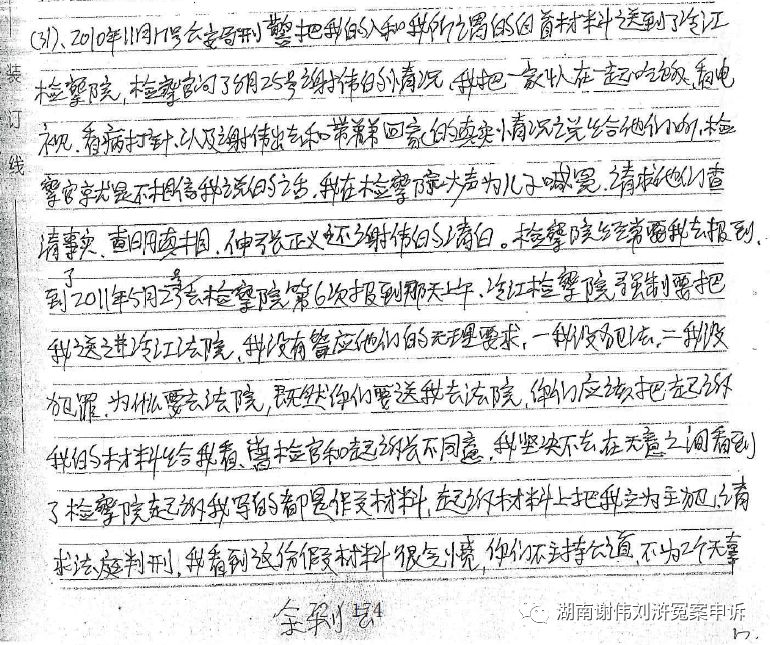 (31)、2010年11月17号公安局刑警把我的人和我所谓的自首材料送到了冷江
检察院，检察官问了8月25号谢伟的情况，我把一家人在一起吃饭，看电
视、看病打针、以及谢伟出去和带弟弟回家的真实情况说给他们听，检
察官就是不相信我说的话，我在检察院大声为儿子喊冤，请求他们查
清事实、查明真相，伸张正义还谢伟的清白。检察院经常要我去报到，
到了2011年5月23号去检察院第6次报到那天上午，冷江检察院强制要把
我送进冷江法院，我没有答应他们的无理要求，一我没犯法，二我没
犯罪，为什么要去法院，既然你们要送我去法院，你们应该把起诉
我的材料给我看，曾检官和起诉长不同意，我坚决不去，在无意之间看到
了检察院起诉我写的都是假材料，起诉材料上把我立为主犯，请
求法庭判刑，我看到这份假材料很气愤，你们不主持公道，不为2个无辜
174
湖南谢伟刘浒冤案申诉
装
订
线